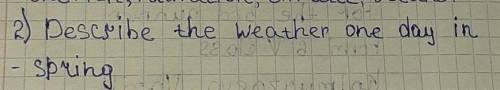 2) Describe the weather one day in
- spring